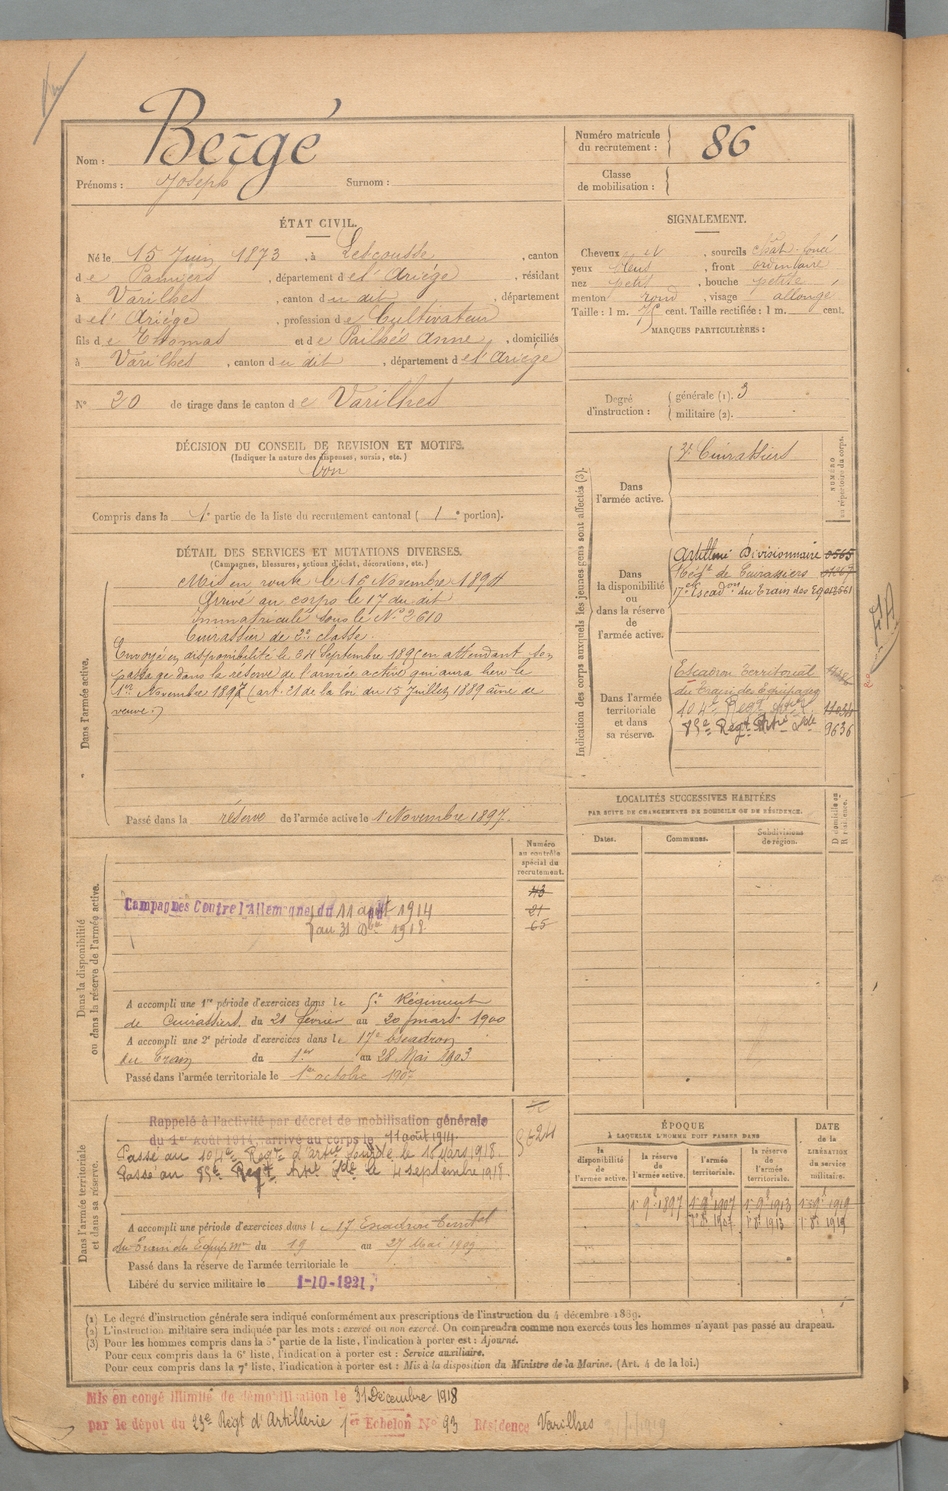 Nom : Bergé
Prénoms : Joseph Surnom :
Numéro matricule du recrutement : 86
Classe de mobilisation :
ÉTAT CIVIL.
Né le 15 Juin 1873, à Lescousse, canton
de Pamiers, département de l'Ariège, résidant
à Varilhes, canton du dit, département
de l'Ariège, profession de Cultivateur
fils de Thomas et de Pailhés Anne, domiciliés
à Varilhes, canton du dit, département de l'Ariège
N° 20 de tirage dans le canton de Varilhes
DÉCISION DU CONSEIL DE REVISION ET MOTIFS.
(Indiquer la nature des dispenses, sursis, etc.)
bon
Compris dans la 1e partie de la liste du recrutement cantonal ( 1e portion).
SIGNALEMENT.
Cheveux et, sourcils chât. foncé
yeux bleus, front ordinaire
nez petit, bouche petite
menton rond, visage allongé
Taille : 1 m. 75 cent. Taille rectifiée : 1 m. cent.
MARQUES PARTICULIÈRES :
Degré d'instruction :
générale (1). 3
militaire (2).
DÉTAIL DES SERVICES ET MUTATIONS DIVERSES.
(Campagnes, blessures, actions d'éclat, décorations, etc.)
Dans l'armée active.
Mis en route le 16 Novembre 1894
Arrivé au corps le 17 du dit
Immatriculé sous le N° 2610
Cuirassier de 2e classe.
Envoyé en disponibilité le 24 Septembre 1895 en attendant son
passage dans la réserve de l'armée active qui aura lieu le
1er Novembre 1897 (art. 21 de la loi du 15 Juillet 1889 aîné de
veuve.)
Passé dans la réserve de l'armée active le 1 Novembre 1897.
Indication des corps auxquels les jeunes gens sont affectés (3).
NUMÉRO au répertoire du corps.
Dans l'armée active.
Cuirassiers
Dans la disponibilité ou dans la réserve de l'armée active.
Artillerie Divisionnaire 0565
Régt de Cuirassiers
17e Escadron du Train des Eq
Dans l'armée territoriale et dans sa réserve.
Escadron Territorial
du Train des Equipages
104e Régt
85e Régt Artie Lde 9636
LOCALITÉS SUCCESSIVES HABITÉES
PAR SUITE DE CHANGEMENTS DE DOMICILE OU DE RÉSIDENCE.
Dates.
Communes.
Subdivisions de région.
D domicile ou R résidence.
Numéro au contrôle spécial du recrutement.
21
65
Dans la disponibilité ou dans la réserve de l'armée active.
Campagnes Contre l'Allemagne, du 11 août 1914
au 31 Xbre 1918
A accompli une 1re période d'exercices dans le 5e Régiment
de Cuirassiers du 21 février au 20 mars 1900
A accompli une 2e période d'exercices dans le 17e Escadron
du Train du 1er au 28 Mai 1903
Passé dans l'armée territoriale le 1er octobre 1907
Dans l'armée territoriale et dans sa réserve.
Rappelé à l'activité par décret de mobilisation générale
du 1er Août 1914, arrivé au corps le 11 août 1914.
Passé au 104e Régt d'artie lourde le 16 Mars 1918
Passé au 85e Régt Artie Lde le 4 septembre 1918
A accompli une période d'exercices dans le 17 Escadron Territal
du Train des Equip. du 19 au 27 Mai 1909
Passé dans la réserve de l'armée territoriale le
Libéré du service militaire le 1-10-1921,
ÉPOQUE
À LAQUELLE L'HOMME DOIT PASSER DANS
DATE de la LIBÉRATION du service militaire.
la disponibilité de l'armée active.
la réserve de l'armée active.
l'armée territoriale.
la réserve de l'armée territoriale.
1 9 1897 1 9 1907 1 9 1913 1 9 1919
1 8 1907 1 8 1913 1 8 1919
(1) Le degré d'instruction générale sera indiqué conformément aux prescriptions de l'instruction du 4 décembre 1889.
(2) L'instruction militaire sera indiquée par les mots : exercé ou non exercé. On comprendra comme non exercés tous les hommes n'ayant pas passé au drapeau.
(3) Pour les hommes compris dans la 5e partie de la liste, l'indication à porter est : Ajourné.
Pour ceux compris dans la 6e liste, l'indication à porter est : Service auxiliaire.
Pour ceux compris dans la 7e liste, l'indication à porter est : Mis à la disposition du Ministre de la Marine. (Art. 4 de la loi.)
Mis en congé illimité de démobilisation le 31 Décembre 1918
par le dépôt du 23e Régt d'Artillerie 1er Echelon N° 93 Résidence Varilhes